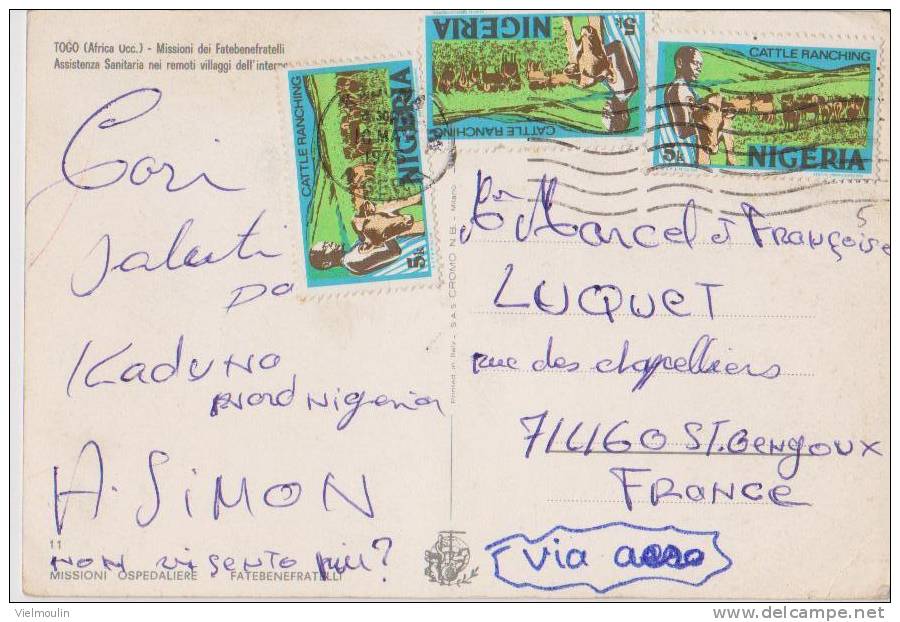 TOGO (Africa Occ.) - Missioni dei Fatebenefratelli
Assistenza Sanitaria nei remoti villaggi dell'interno
Cari
saluti
Da
KADUNA
Nord Nigeria
A. SIMON
NON vi sento più?
11
MISSIONI OSPEDALIERE FATEBENEFRATELLI
CATTLE RANCHING
5k
NIGERIA
CATTLE RANCHING
5k
NIGERIA
CATTLE RANCHING
5k
NIGERIA
Printed in Italy - S.A.S. CROMO N.B. - Milano
5
Marcel et FRANÇOISE
LUQUET
rue des chapelliers
71460 ST. Gengoux
FRANCE
via aereo
Vielmoulin
http://www.delcampe.net